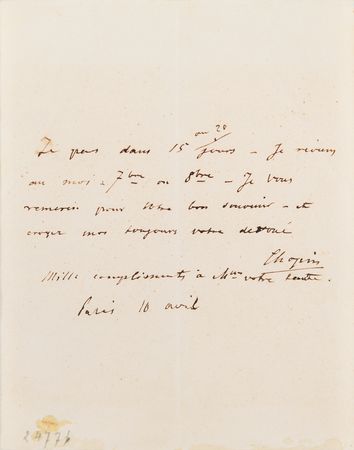 ou 20
Je pars dans 15 jours – Je reviens
au mois 7bre ou 8bre – Je vous
remercie pour votre bon souvenir – et
croyez moi toujours votre devoué
Chopin
Mille compliments à Mme votre tante.
Paris 10 avril
24776